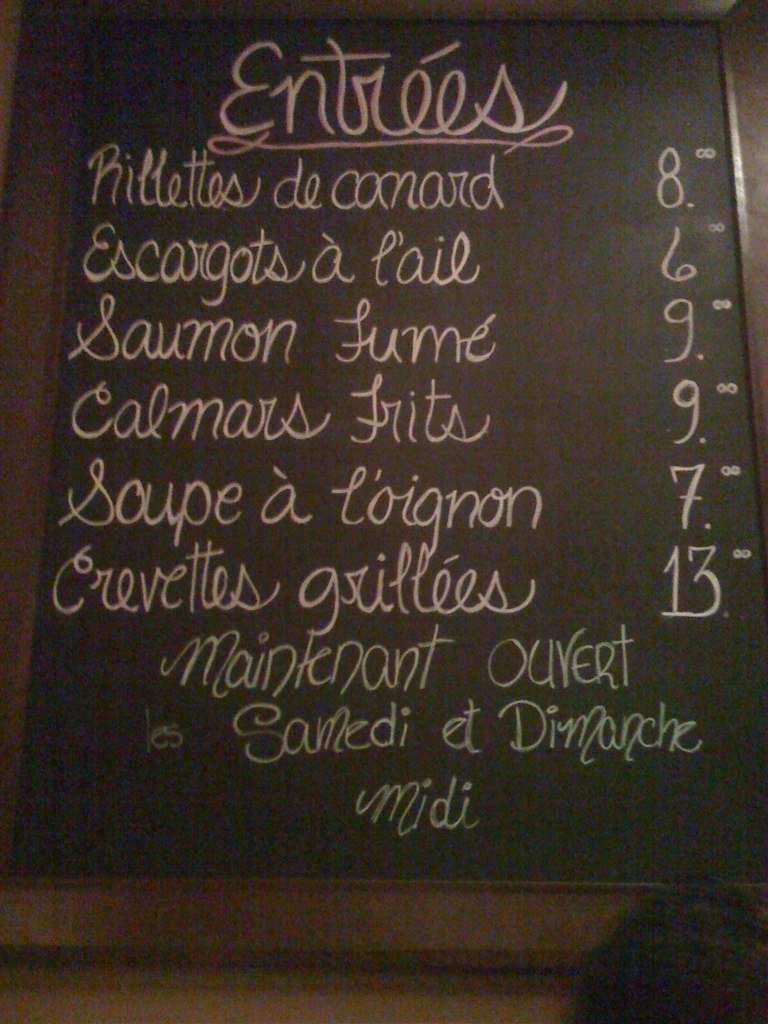 Entrées
Rillettes de canard 8.00
Escargots à l'ail 6 00
Saumon fumé 9.00
Calmars frits 9.00
Soupe à l'oignon 7.00
Crevettes grillées 13.00
Maintenant ouvert
les Samedi et Dimanche
midi